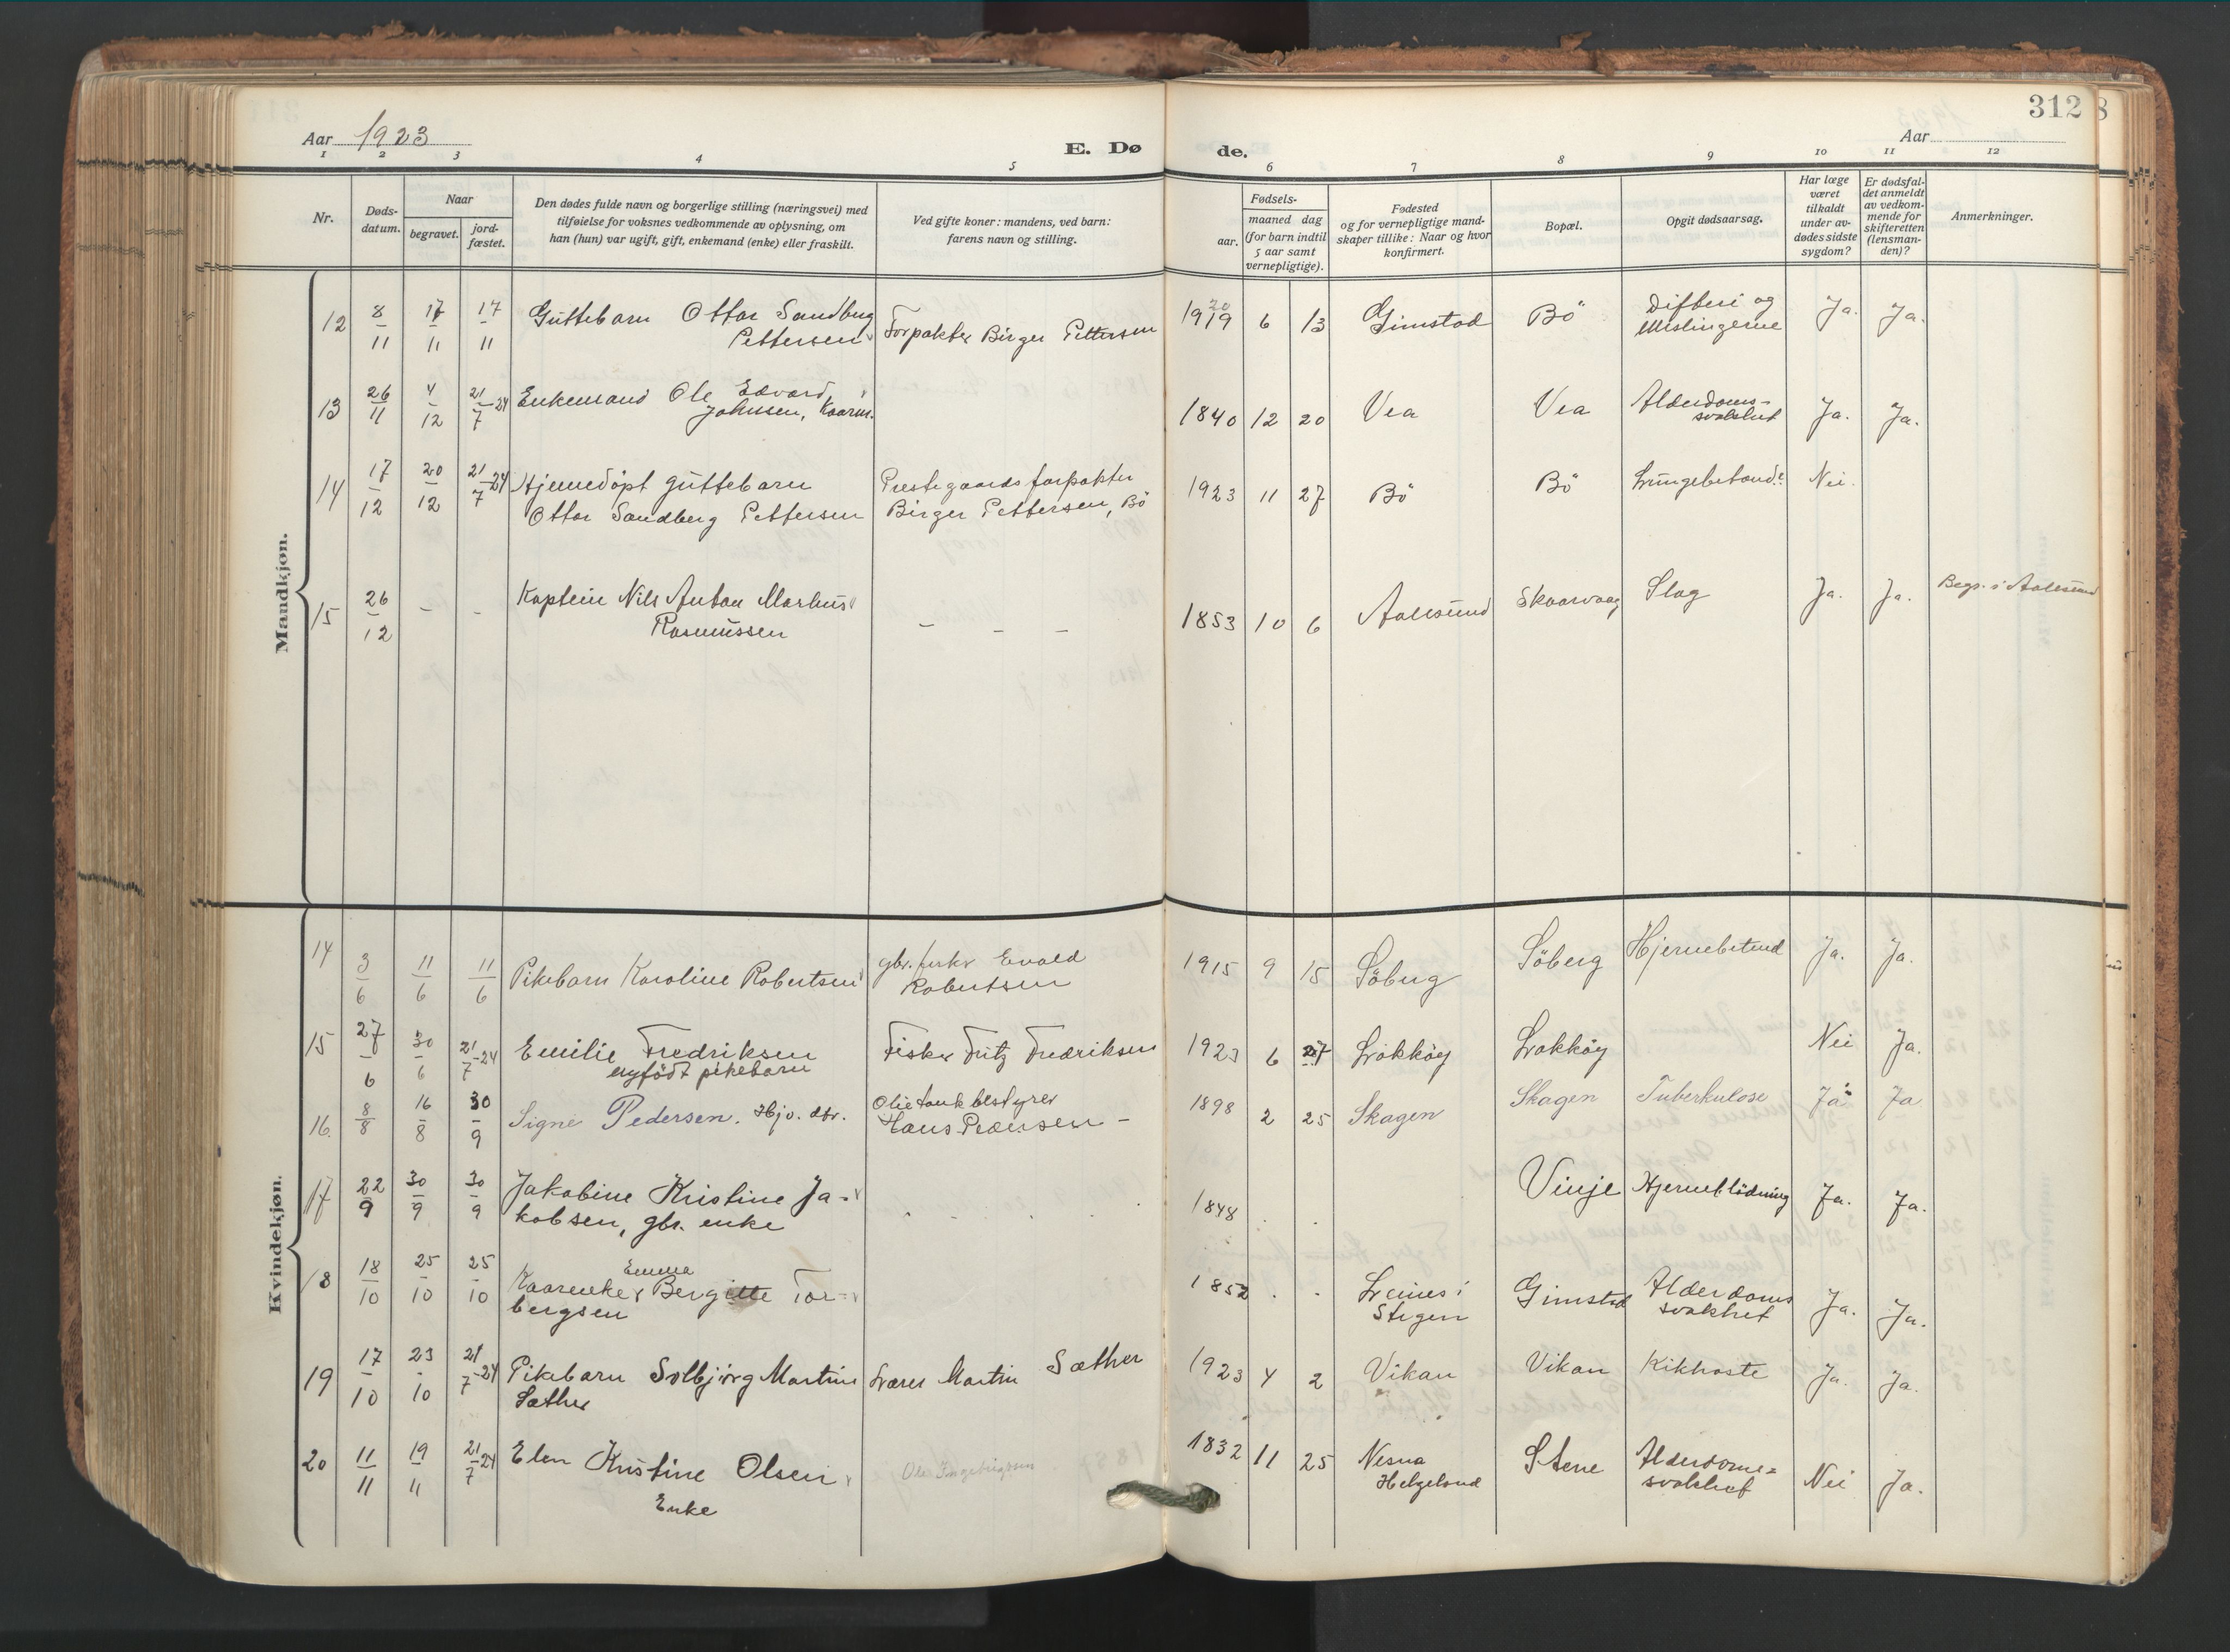 312
Aar 1923
E. Dø de.
Aar
1 2 3 4 5 6 7 8 9 10 11 12
Nr.
Døds-
datum.
Naar
begravet.
jord-
fæstet.
Den dødes fulde navn og borgerlige stilling (næringsvei) med
tilføielse for voksnes vedkommende av oplysning, om
han (hun) var ugift, gift, enkemand (enke) eller fraskilt.
Ved gifte koner: mandens, ved barn:
farens navn og stilling.
Fødsels-
aar.
maaned dag
(for barn indtil
5 aar samt
vernepligtige).
Fødested
og for vernepligtige mand-
skaper tillike: Naar og hvor
konfirmert.
Bopæl.
Opgit dødsaarsag.
Har læge
været
tilkaldt
under av-
dødes sidste
sygdom?
Er dødsfal-
det anmeldt
av vedkom-
mende for
skifteretten
(lensman-
den)?
Anmerkninger.
Mandkjøn.
12 8/11 17/11 17/11 Guttebarn Ottar Sandberg Forpakter Birger Pettersen 1919 20 6 13 Gimstad Bö Difteri og Ja. Ja.
Pettersen Meslingerne
13 26/11 4/12 21/7-24 Enkemand Ole Edvard 1840 12 20 Vea Vea Alderdoms- Ja. Ja.
Johnsen, Kaarm. svakhet
14 17/12 20/12 21/7-24 Hjemmedöpt guttebarn Prestegaardsforpakter 1923 11 27 Bö Bö Lungebetænd. Nei.
Ottar Sandberg Pettersen Birger Pettersen, Bö
15 26/12 - - Kaptein Nils Anton Markus - - - 1853 10 6 Aalesund Skaarvaag Slag Ja. Ja. Begr. i Aalesund
Rasmussen
Kvindekjøn.
14 3/6 11/6 11/6 Pikebarn Karoline Robertsen gbr. fisker Evald 1915 9 15 Söberg Söberg Hjernebetend Ja. Ja.
Robertsen
15 27/6 30/6 21/7-24 Emilie Fredriksen Fisker Fritz Fredriksen 1923 6 27 Lokköy Lokköy Nei Ja.
nyfödt pikebarn
16. 8/8 16/8 30/9 Signe Pedersen. Hjv. dtr. Olietankbestyrer 1898 2 25 Skagen Skagen Tuberkulose Ja Ja
Hans Pedersen -
17 22/9 30/9 30/9 Jakobine Kristine Ja- 1848 Vinje Hjerneblödning Ja. Ja.
kobsen, gbr. enke
18 18/10 25/10 25/10 Kaarenke Emma Bergitte Tor- 1852 Leines i Gimstad Alderdoms Ja. Ja.
bergsen Stegen svakhet
19 17/10 23/10 21/7-24 Pikebarn Solbjörg Martine Lærer Martin Sæther 1923 4 2 Vikan Vikan Kikhoste Ja. Ja.
Sæther
20 11/11 19/11 21/7-24 Elen Kristine Olsen Ole Ingebrigtsen 1832 11 25 Nesna Stene Alderdoms- Nei Ja.
Enke Helgeland svakhet